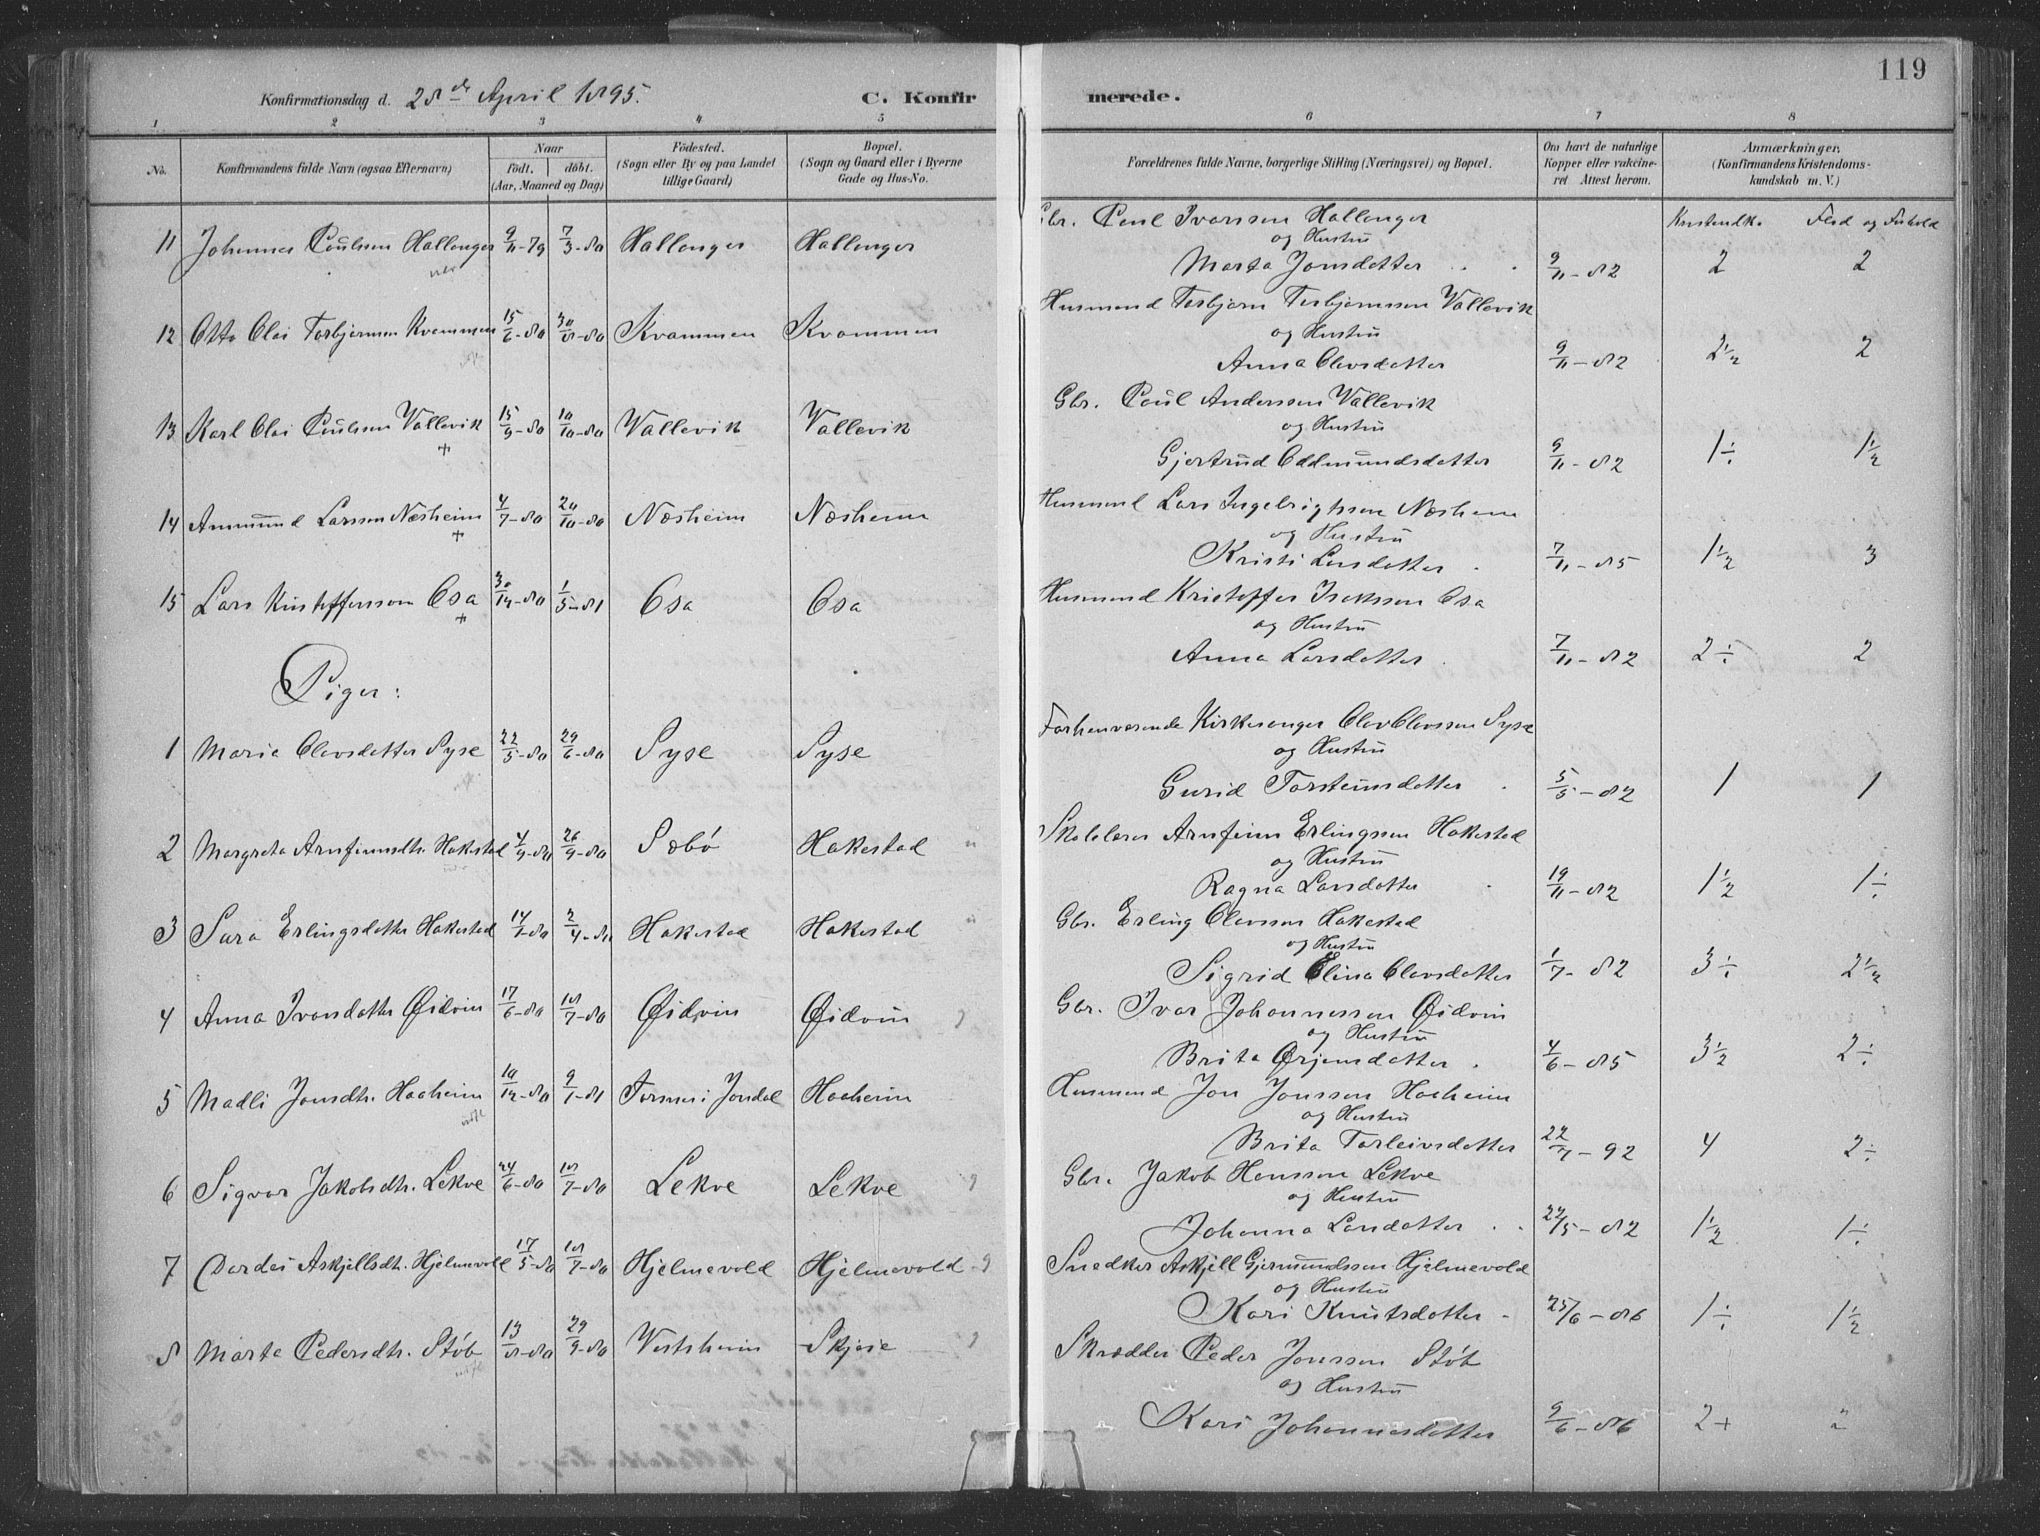 119
Konfirmationsdag d. 28de April 1895. C. Konfirmerede.
1 2 3 4 5 6 7 8
No. Konfirmandens fulde Navn (ogsaa Efternavn) Naar født. døbt. (Aar, Maaned og Dag) Fødested. (Sogn eller By og paa Landet tillige Gaard) Bopæl. (Sogn og Gaard eller i Byerne Gade og Hus-No. Forældrenes fulde Navne, borgerlige Stilling (Næringsvei) og Bopæl. Om havt de naturlige Kopper eller vaccineret Attest herom. Anmærkninger, (Konfirmandens Kristendomskundskab m. V.)
Kristendk. Flid og Forhold
Gbr. Poul Ivarssen Hallanger
11 Johannes Poulsen Hallanger 9/11-79 7/3-80 Hallanger Hallanger og Hustru
Marta Jonsdatter 9/11-82 2 2
Husmand Torbjørn Torbjørnssen Vallevik
12 Otto Olai Torbjørnsen Kvammen 15/6-80 30/8-80 Kvammen Kvammen og Hustru
Anna Olavsdatter 9/11-82 2½ 2
Gbr. Poul Anderssen Vallevik
13 Karl Olai Poulsen Vallevik 15/9-80 10/10-80 Vallevik Vallevik og Hustru
+
Gjertrud Oddmundsdatter 9/11-82 1÷ 1½
Husmand Lars Ingebrigtssen Næsheim
14 Ammund Larssen Næsheim 4/7-80 20/10-80 Næsheim Næsheim og Hustru
+
Kristi Larsdatter 7/11-85 1½ 3
Husmand Kristoffer Isakssen Osa
15 Lars Kristofferssen Osa 30/12-80 1/5-81 Osa Osa og Hustru
+
Anna Larsdatter 7/11-82 2÷ 2
Piger:
Forhenværende Kirkesanger Olav Olavssen Syse
1 Maria Olavsdatter Syse 22/5-80 29/6-80 Syse Syse og Hustru
Gurid Torsteinsdatter 5/5-82 1 1
Skolelærer Arnfinn Erlingssen Hakestad
2 Margreta Arnfinnsdtr. Hakestad 4/9-80 26/9-80 Sæbø Hakestad og Hustru
Ragna Larsdatter 19/11-82 1½ 1÷
Gbr. Erling Olavssen Hakestad
3 Sara Erlingsdatter Hakestad Hakestad Hakestad og Hustru
Sigrid Elina Olavsdatter 1/7-82 3÷ 2½
Gbr. Ivar Johannessen Øidvin
4 Anna Ivarsdatter Øidvin 17/6-80 18/7-80 Øidvin Øidvin og Hustru
Brita Ørjansdatter 4/6-85 3½ 2÷
Husmand Jon Jonssen Haaheim
5 Madli Jonsdtr. Haaheim 10/12-80 9/1-81 Torsnes i Jondal Haaheim og Hustru
Brita Torleivsdatter 22/7-92 4 2÷
Gbr. Jakob Hanssen Lekve
6 Sigvor Jakobsdtr. Lekve 24/6-80 18/7-80 Lekve Lekve og Hustru
Johanna Larsdatter 22/5-82 1½ 1÷
Snedker Askjell Gjermundssen Hjelmevold
7 Dordei Askjellsdtr. Hjelmevold 17/5-80 18/7-80 Hjelmevold Hjelmevold og Hustru
Kari Knutsdatter 25/6-86 1÷ 1½
Skrædder Peder Jonssen Støb
8 Marta Pedersdtr. Støb 13/8-80 29/9-80 Vestrheim Skjeie og Hustru
Kari Johannesdatter 9/6-86 2+ 2